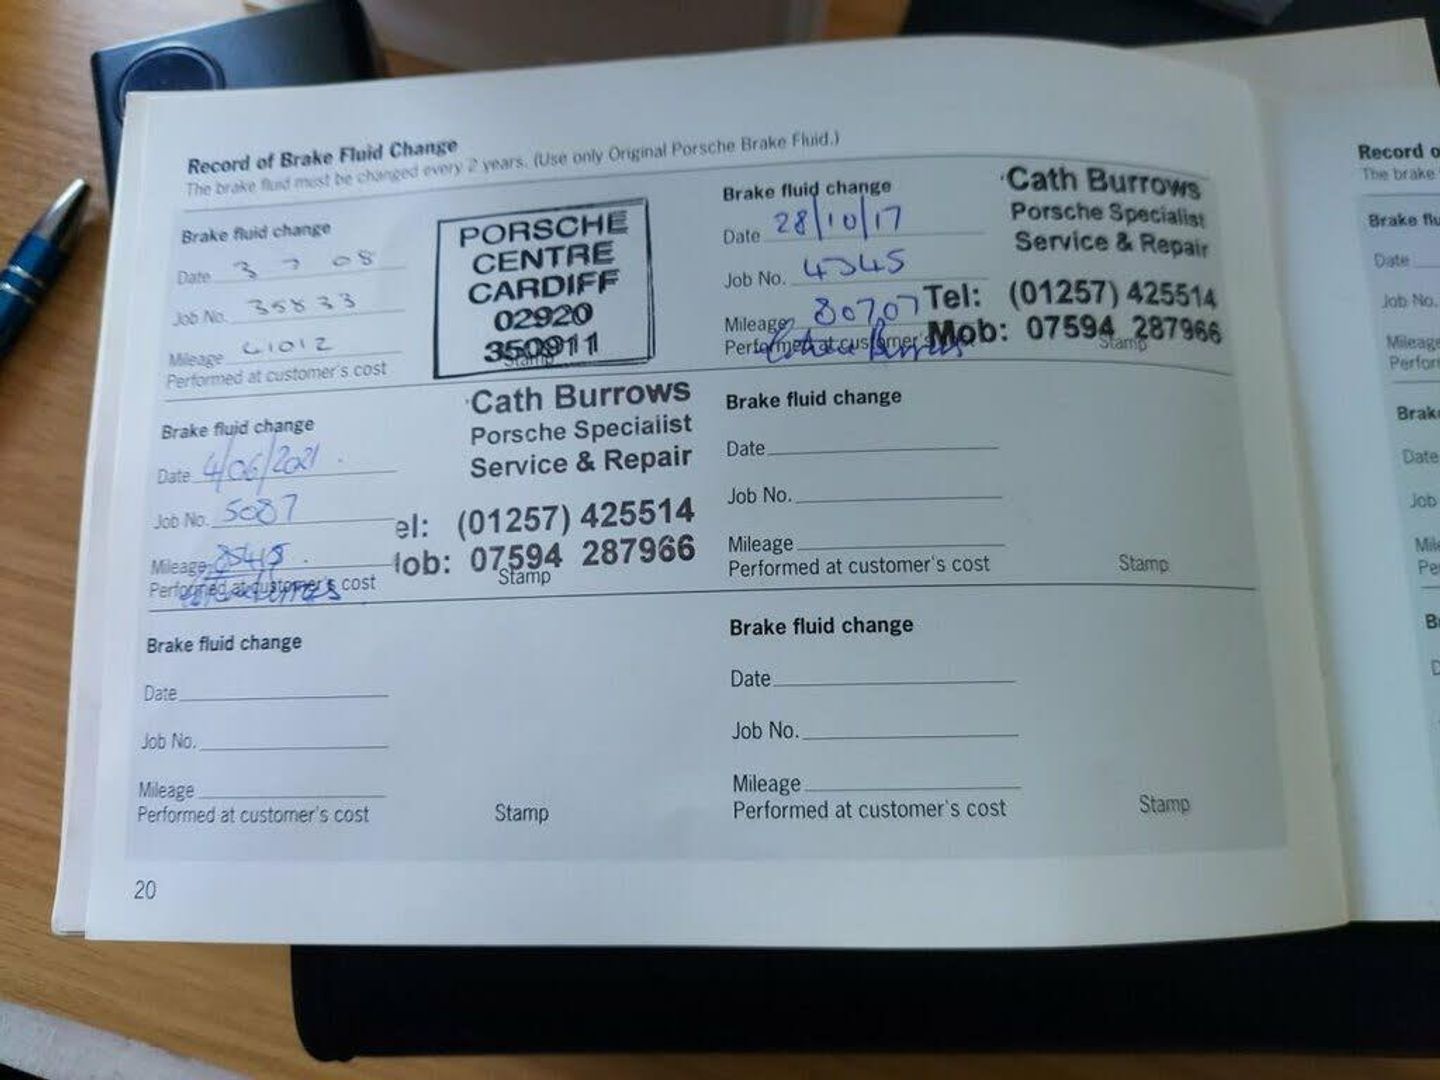 Record of Brake Fluid Change
The brake fluid must be changed every 2 years. (Use only Original Porsche Brake Fluid.)
Brake fluid change
Date 3 7 08
Job No. 35833
Mileage 61012
Performed at customer's cost
PORSCHE
CENTRE
CARDIFF
02920
350911
Stamp
Brake fluid change
Date 28/10/17
Job No. 4345
Mileage 80707
Performed at customer's
Cath Burrows
Porsche Specialist
Service & Repair
Tel: (01257) 425514
Mob: 07594 287966
Stamp
Brake fluid change
Date 4/06/2021
Job No. 5087
Mileage
Performed at customer's cost
Cath Burrows
Porsche Specialist
Service & Repair
el: (01257) 425514
lob: 07594 287966
Stamp
Brake fluid change
Date
Job No.
Mileage
Performed at customer's cost
Stamp
Brake fluid change
Date
Job No.
Mileage
Performed at customer's cost
Stamp
Brake fluid change
Date
Job No.
Mileage
Performed at customer's cost
Stamp
20
Record o
The brake
Brake flu
Date
Job No.
Mileage
Perfor
Brake
Date
Job
Mile
Pe
B